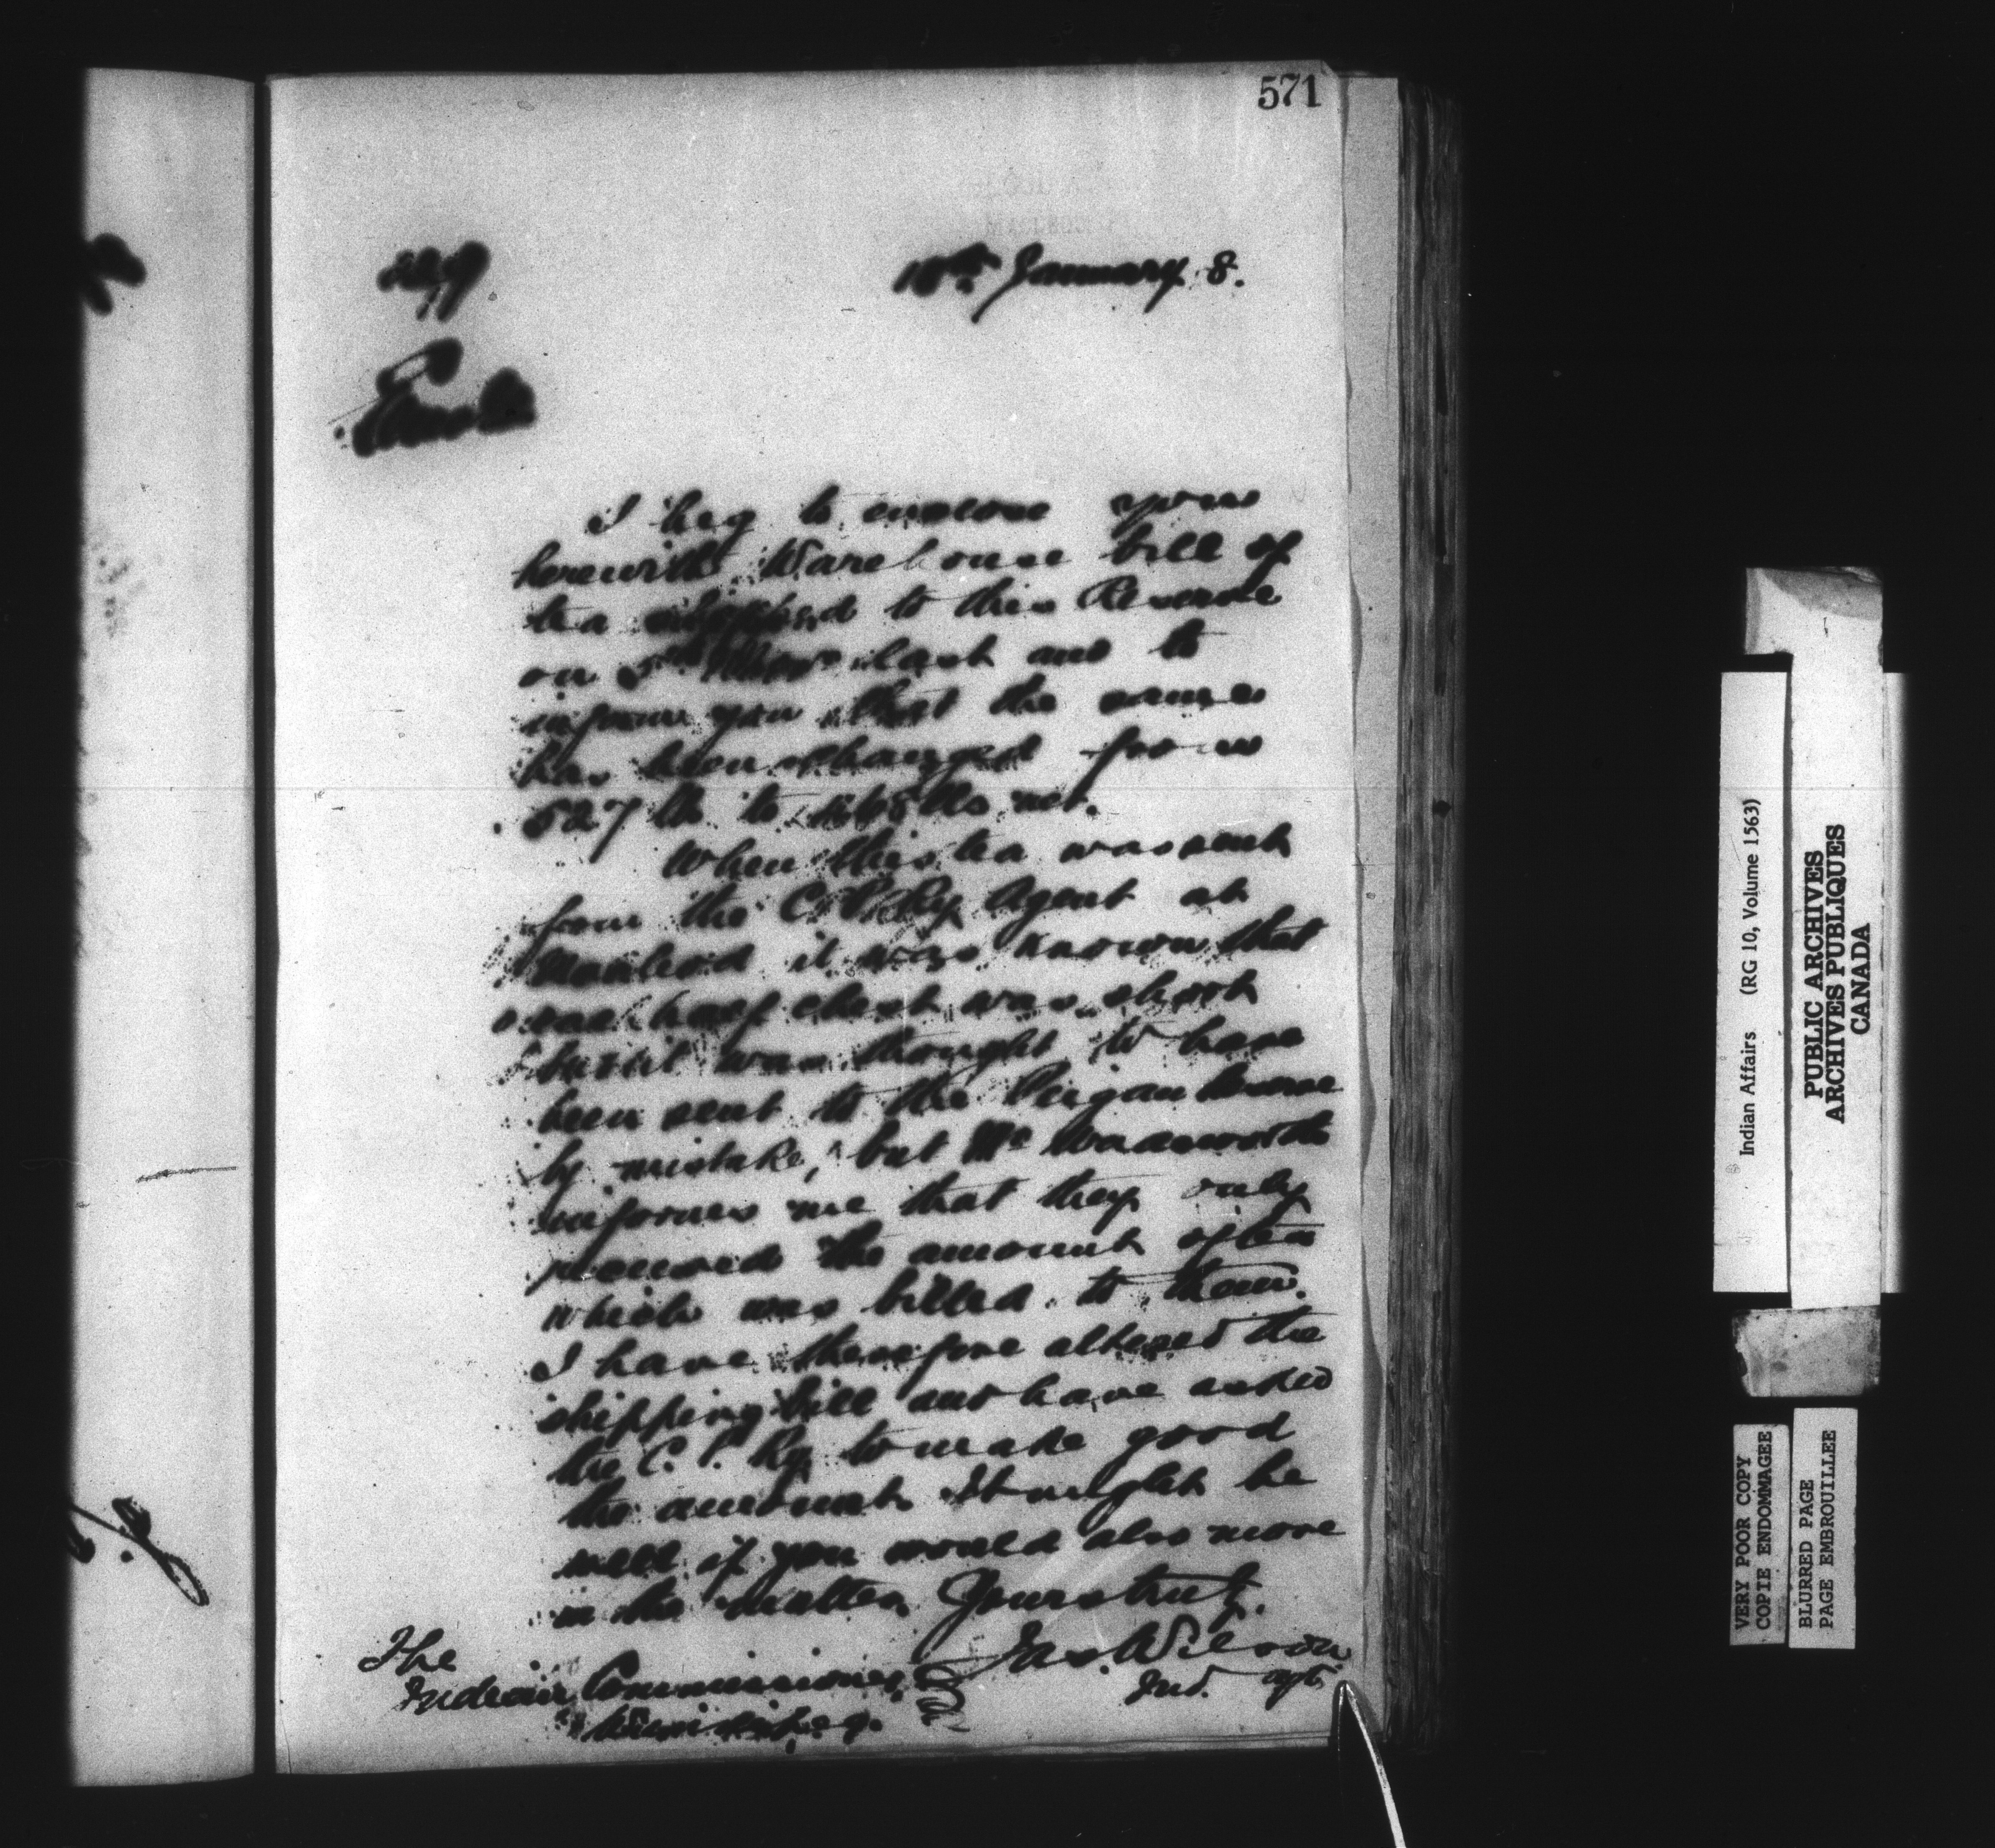 571
18th January 8.
I beg to enclose you
herewith Warehouse bill of
tea shipped to this Reserve
on 5th Nov. last and to
inform you that the same
has been changed from
527 lb to lbs net.
When this tea was sent
from the C.P.Ry Agent at
Macleod it was known that
one half chest was short
but it was thought to have
been sent to the Peigan Reserve
by mistake, but Mr Wadsworth
informs me that they only
received the amount of tea
which was billed to them.
I have therefore altered the
shipping bill and have asked
the C. P. Ry to make good
the amount. It might be
well if you would also move
in the matter. Yours truly.
Jas. Wilson
Ind. Agt.
The
Indian Commissioner
Winnipeg.
Indian Affairs (RG 10, Volume 1563)
PUBLIC ARCHIVES
ARCHIVES PUBLIQUES
CANADA
VERY POOR COPY
COPIE ENDOMMAGEE
BLURRED PAGE
PAGE EMBROUILLEE